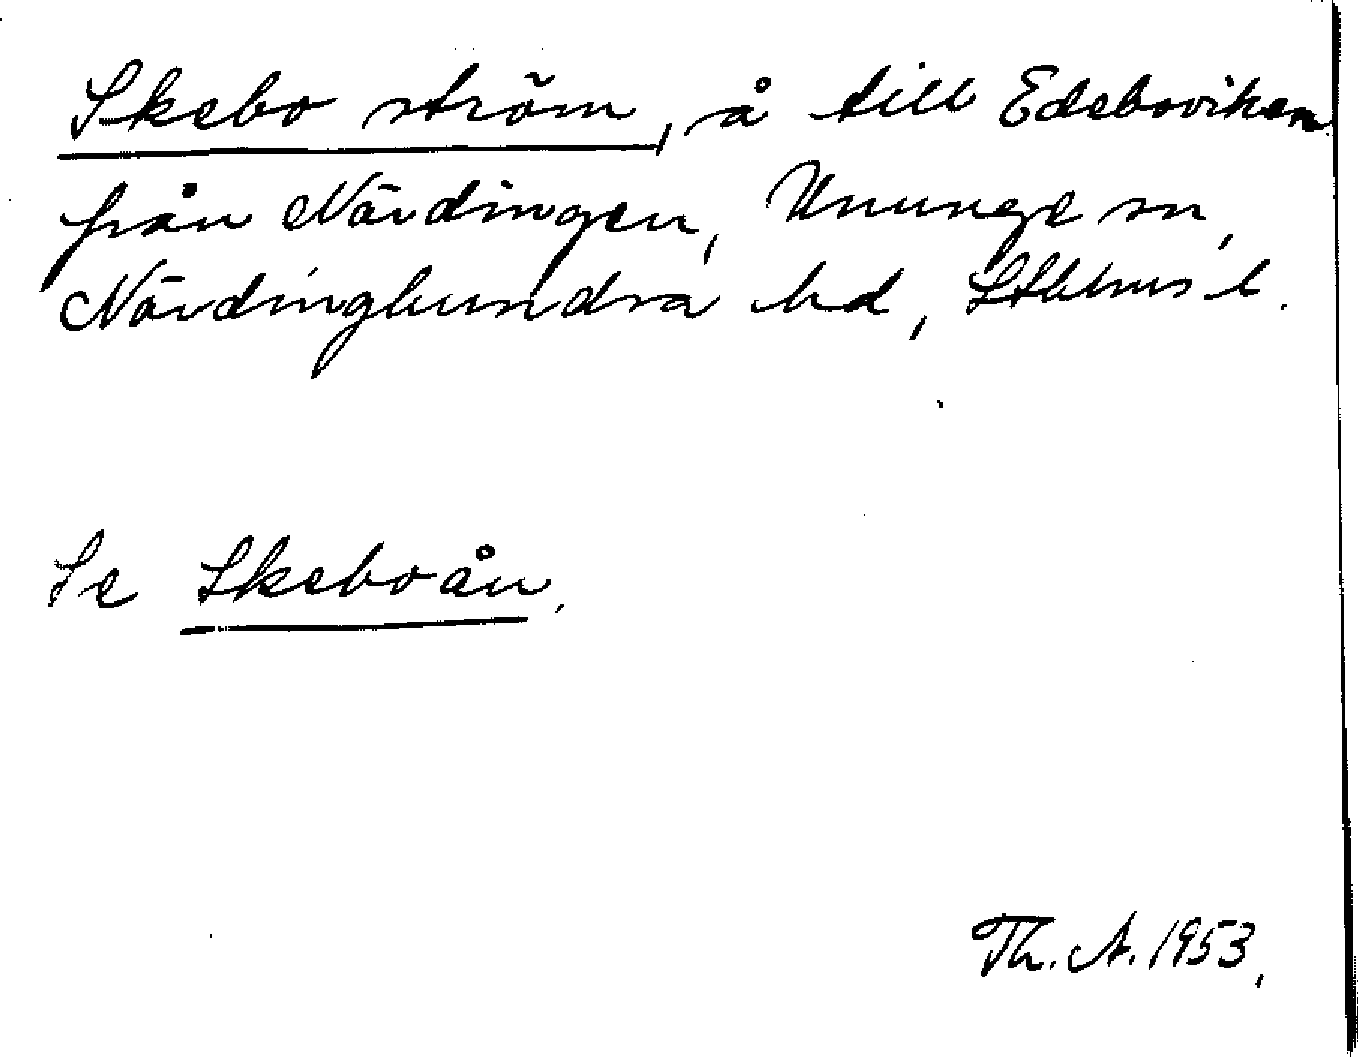 Skebo ström, å till Edeboviken
från Närdingen, Ununge sn,
Närdinghundra hd, Sthlms l.
Se Skeboån,
Th. A. 1953,